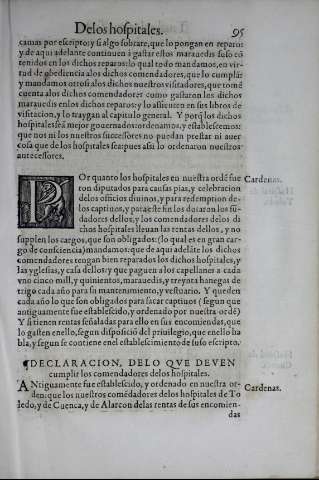 De los hospitales. 95
camas por escripto: y si algo sobrare, que lo pongan en reparos
y de aqui adelante continuen à gastar estos marauedis suso cõ
tenidos en los dichos reparos: lo qual todo mandamos, en vir-
tud de obediencia a los dichos comendadores, que lo cumplã:
y mandamos otrosi a los dichos nuestros visitadores, que tomẽ
cuenta a los dichos comendadores como gastaron los dichos
marauedis en los dichos reparos: y lo assienten en ses libros de
visitacion, y lo traygan al capitulo general. Y porq̃ los dichos
hospitales seã mejor gouernados: ordenamos, y establescemos:
que nos ni los nuestros successores no puedan prestar ni auer
cosa que de los hospitales sea: pues assi lo ordenaron nuestros
antecessores.
POr quanto los hospitales en nuestra ordẽ fue Cardenas.
ron diputados para causas pias, y celebracion
de los officios diuinos, y para redemption de-
los captiuos, y para este fin los dotaron los fũ-
dadores dellos; y los comendadores de los di
chos hospitales lleuan las rentas dellos, y no
supplen los cargos, que son obligados: (lo qual es en gran car-
go de consciencia) mandamos: que de aqui adelãte los dichos
comendadores tengan bien reparados los dichos hospitales, y
las yglesias, y casa dellos: y que paguen a los capellanes a cada
vno cinco mill, y quinientos, marauedis, y treynta hanegas de
trigo cada año para su mantenimiento, y vestuario. Y que den
cada año lo que son obligados para sacar captiuos (segun que
antiguamente fue establescido, y ordenado por nuestra ordẽ)
Y si tienen rentas señaladas para ello en sus encomiendas, que
lo gasten en ello, segun disposiciõ del priuilegio, que en ello ha
bla, y segun se contiene en el establescimiento de suso escripto.
¶DECLARACION, DE LO QVE DEVEN
cumplir los comendadores de los hospitales.
ANtiguamente fue establescido, y ordenado en nuestra or- Cardenas.
den: que los nuestros comẽdadores de los hospitales de To
ledo, y de Cuenca, y de Alarcon de las rentas de sus encomien-
das